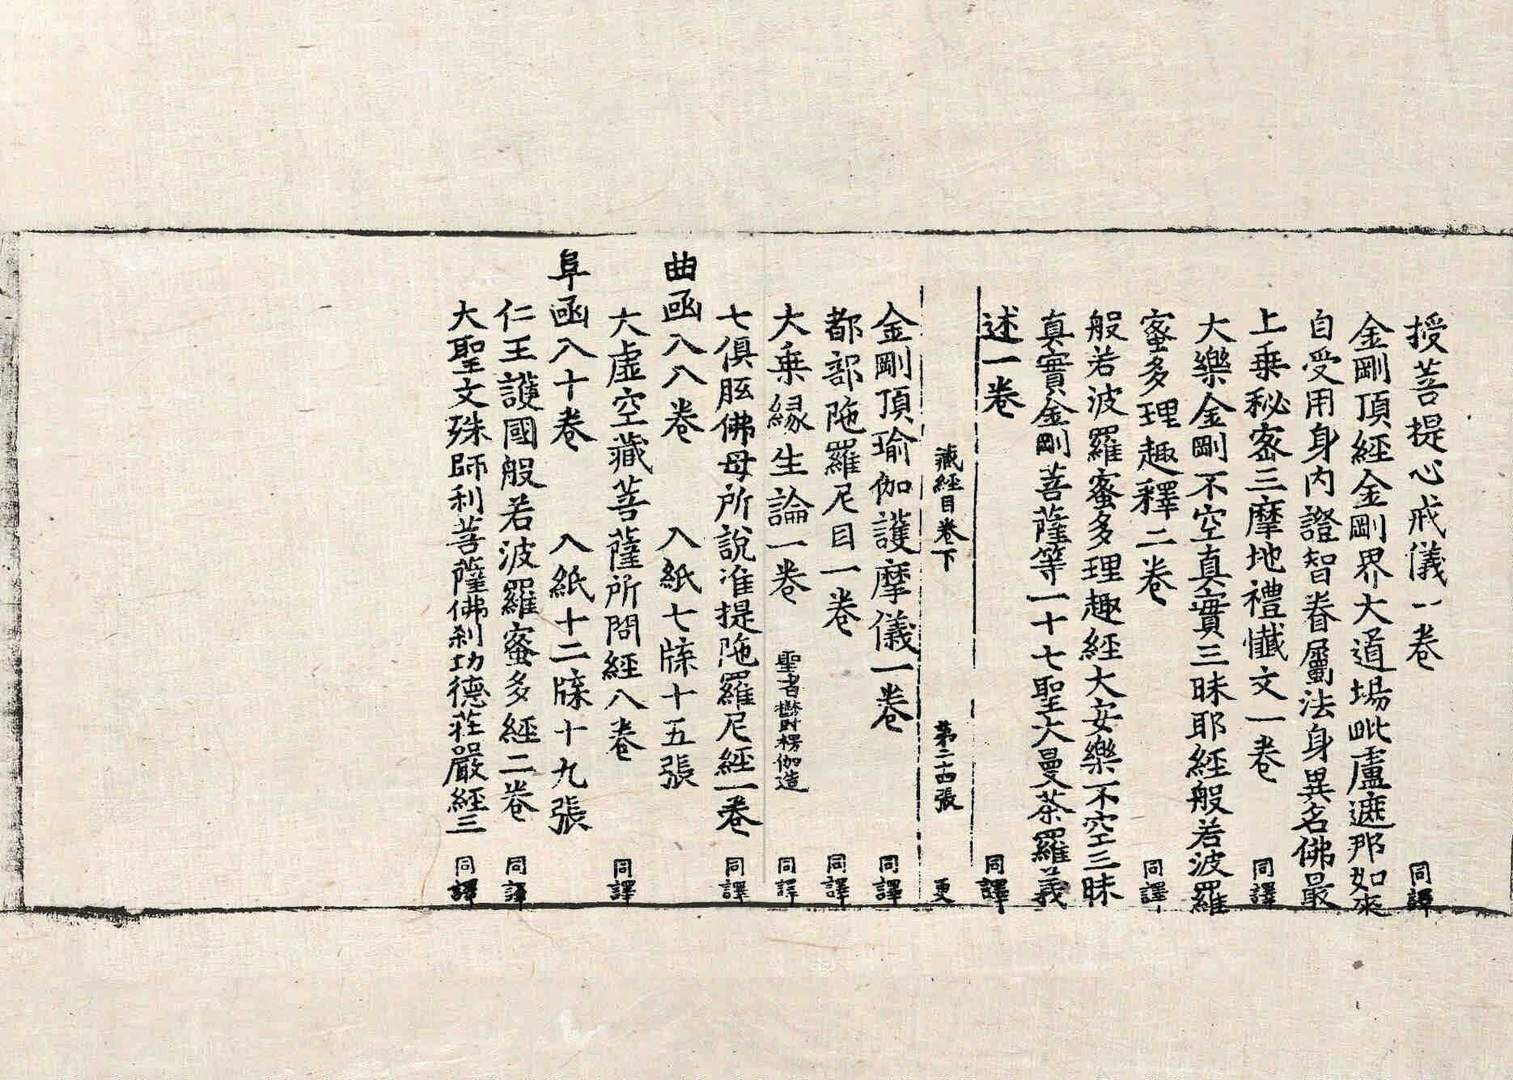 授菩提心戒儀一卷 同譯
金剛頂經金剛界大道場毗盧遮那如來
自受用身內證智眷屬法身異名佛最
上乗秘密三摩地禮懺文一卷 同譯
大樂金剛不空真實三昧耶經般若波羅
蜜多理趣釋二卷 同譯
般若波羅蜜多理趣經大安樂不空三昧
真實金剛菩薩等一十七聖大曼荼羅義
述一卷 同譯
藏經目卷下 第二十四張 更
金剛頂瑜伽護摩儀一卷 同譯
都部陁羅尼目一卷 同譯
大乗緣生論一卷 聖者欝楞伽造 同譯
七俱胝佛母所說准提陁羅尼經一卷 同譯
曲函入八卷 入紙七牒十五張
大虛空藏菩薩所問經八卷 同譯
阜函入十卷 入紙十二牒十九張
仁王護國般若波羅蜜多經二卷 同譯
大聖文殊師利菩薩佛剎功德莊嚴經三 同譯